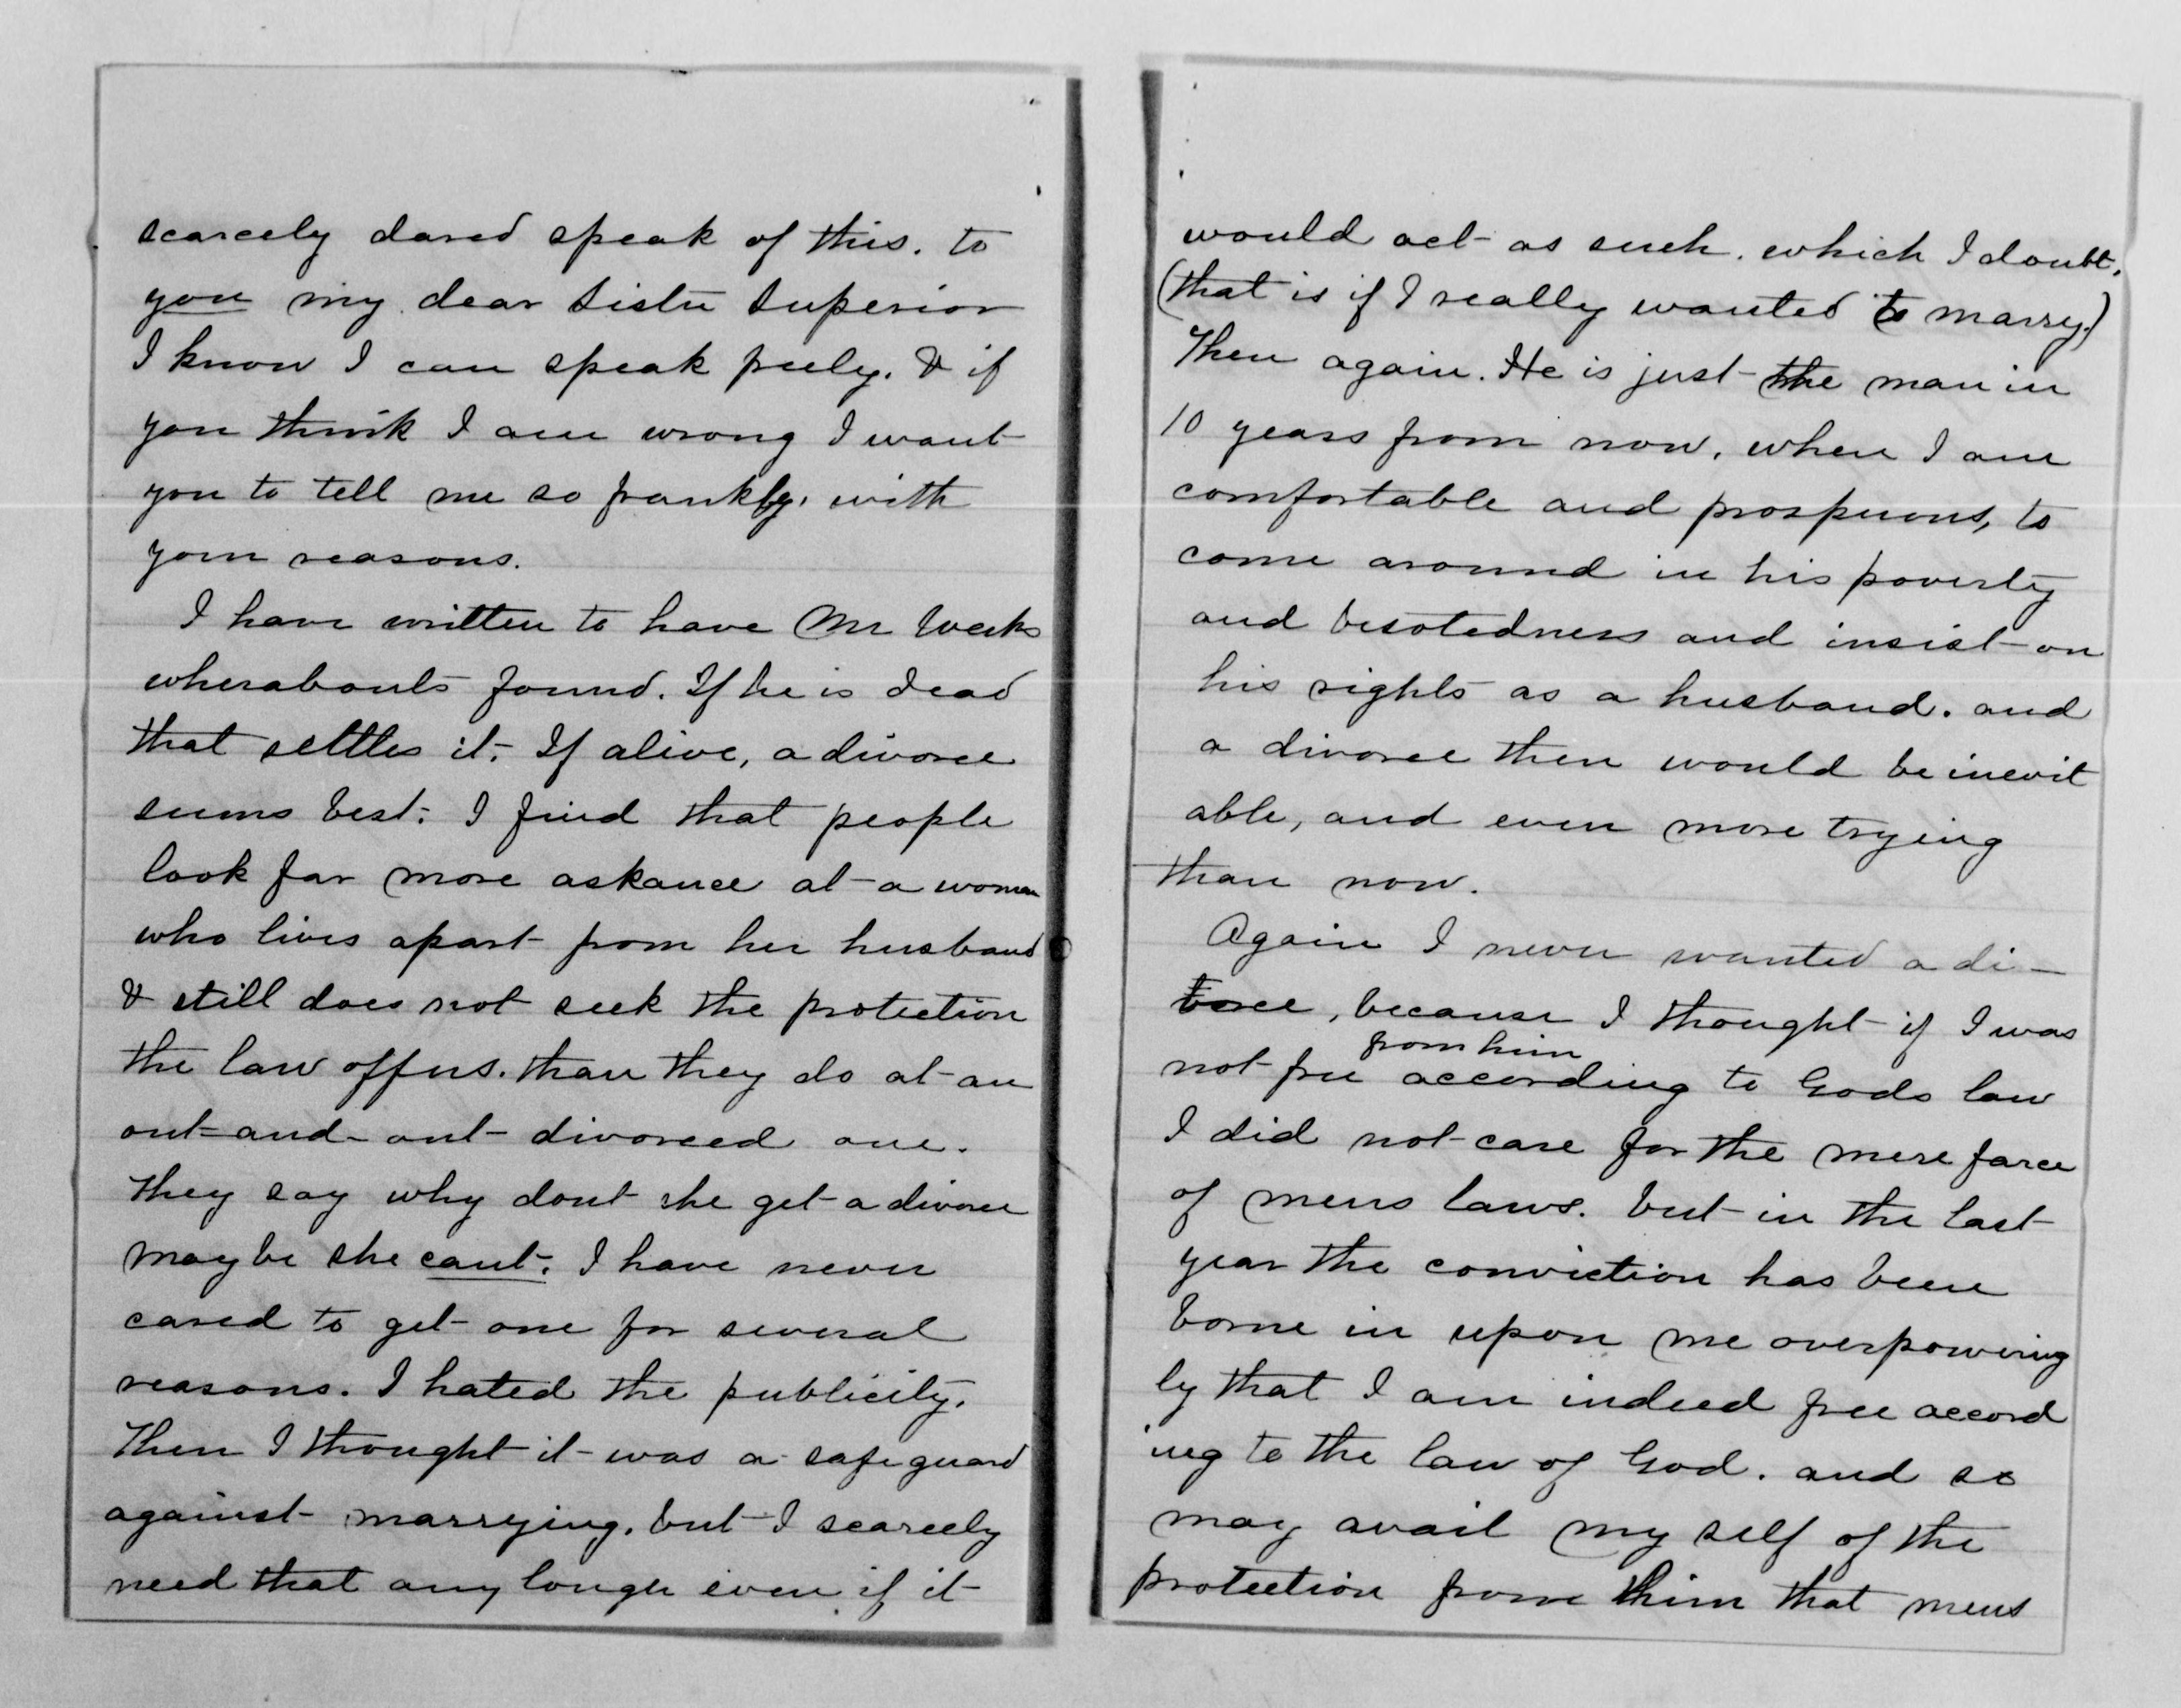 scarcely dared speak of this. to
you my dear Sister Superior
I know I can speak freely. & if
you think I am wrong I want
you to tell me so frankly, with
your reasons.
I have written to have Mr Weeks
wherabouts found. If he is dead
that settles it. If alive, a divorce
seems best. I find that people
look far more askance at a woman
who lives apart from her husband
& still does not seek the protection
the law offers. than they do at an
out-and-out divorced one.
They say why dont she get a divorce
maybe she cant. I have never
cared to get one for several
reasons. I hated the publicity.
Then I thought it was a safeguard
against marrying. but I scarcely
need that any longer even if it
would act as such. which I doubt.
(that is if I really wanted to marry.)
Then again. He is just the man in
10 years from now, when I am
comfortable and prosperous, to
come around in his poverty
and besotedness and insist on
his rights as a husband. and
a divorce then would be inevit
able, and even more trying
than now.
Again I never wanted a di-
vorce, because I thought if I was
from him
not free according to Gods law
I did not care for the mere farce
of mens laws. but in the last
year the conviction has been
borne in upon me overpowering
ly that I am indeed free accord
ing to the law of God. and so
may avail my self of the
protection from him that mens